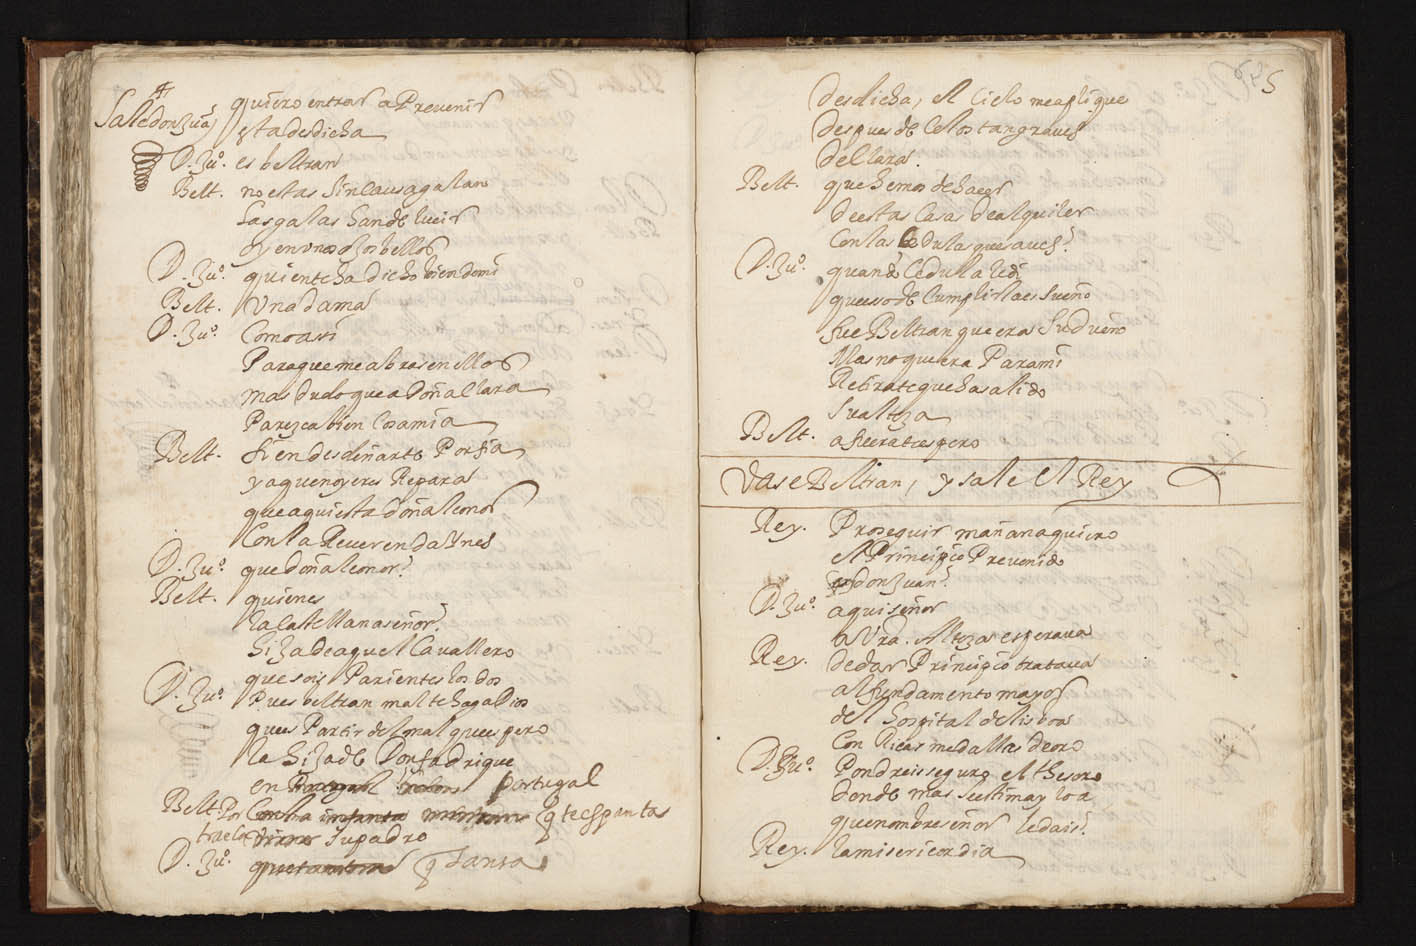 quiero entrar a Prevenir
Sale don Juā esta desdicha
D. Juº. es beltran
Belt. no estas sin causa galan
las galas han de lucir
oy en unos ojos bellos
D. Juº. quien te ha dicho bien de mi
Belt. Una dama
D. Juº. Como asi
Para que me abrasen ellos
mas dudo que a Doña Clara
Parezca bien Cosa mia
Belt. si en desdeñarte Porfia
ya que no yeres Repara
que aqui esta doña leonor
Con la Reverenda Ynes
D. Juº. que doña leonor?
Belt. quien es
la Castellana señor?
hija de aquel Cavallero
que sois Parientes los dos
D. Juº. Pues beltran mal te haga Dios
que es Partir del mal que espero
la hija de Don fadrique
en Portugal
Belt. Por q te espantas
trae la su padre
D. Juº. q santa
5
desdicha, el Cielo me aplique
despues de Celos tan graves
del lara
Belt. que hemos de haçer
de estas Casas de alquiler
Con las Cedulas que aues?
D. Juº. quando Cedula le di
que eso de Cumplirla es sueño
fue Beltran que era su dueño
Mas no que era Para mi
Retirate que ha salido
Su alteza
Belt. a fuera te espero
Vase Beltran, y sale el Rey
Rey. Proseguir mañana quiero
el Principio Prevenido
don Juan?
D. Juº. aqui señor
a Vra. Alteza esperaua
Rey. de dar Principio trataua
al fundamento mayor
del hospital de lisboa
Con Ricas medallas de oro
D. Juº. Pondreis seguro el thesoro
donde mas se estima y loa
que nombre señor le dais?
Rey. la misericordia